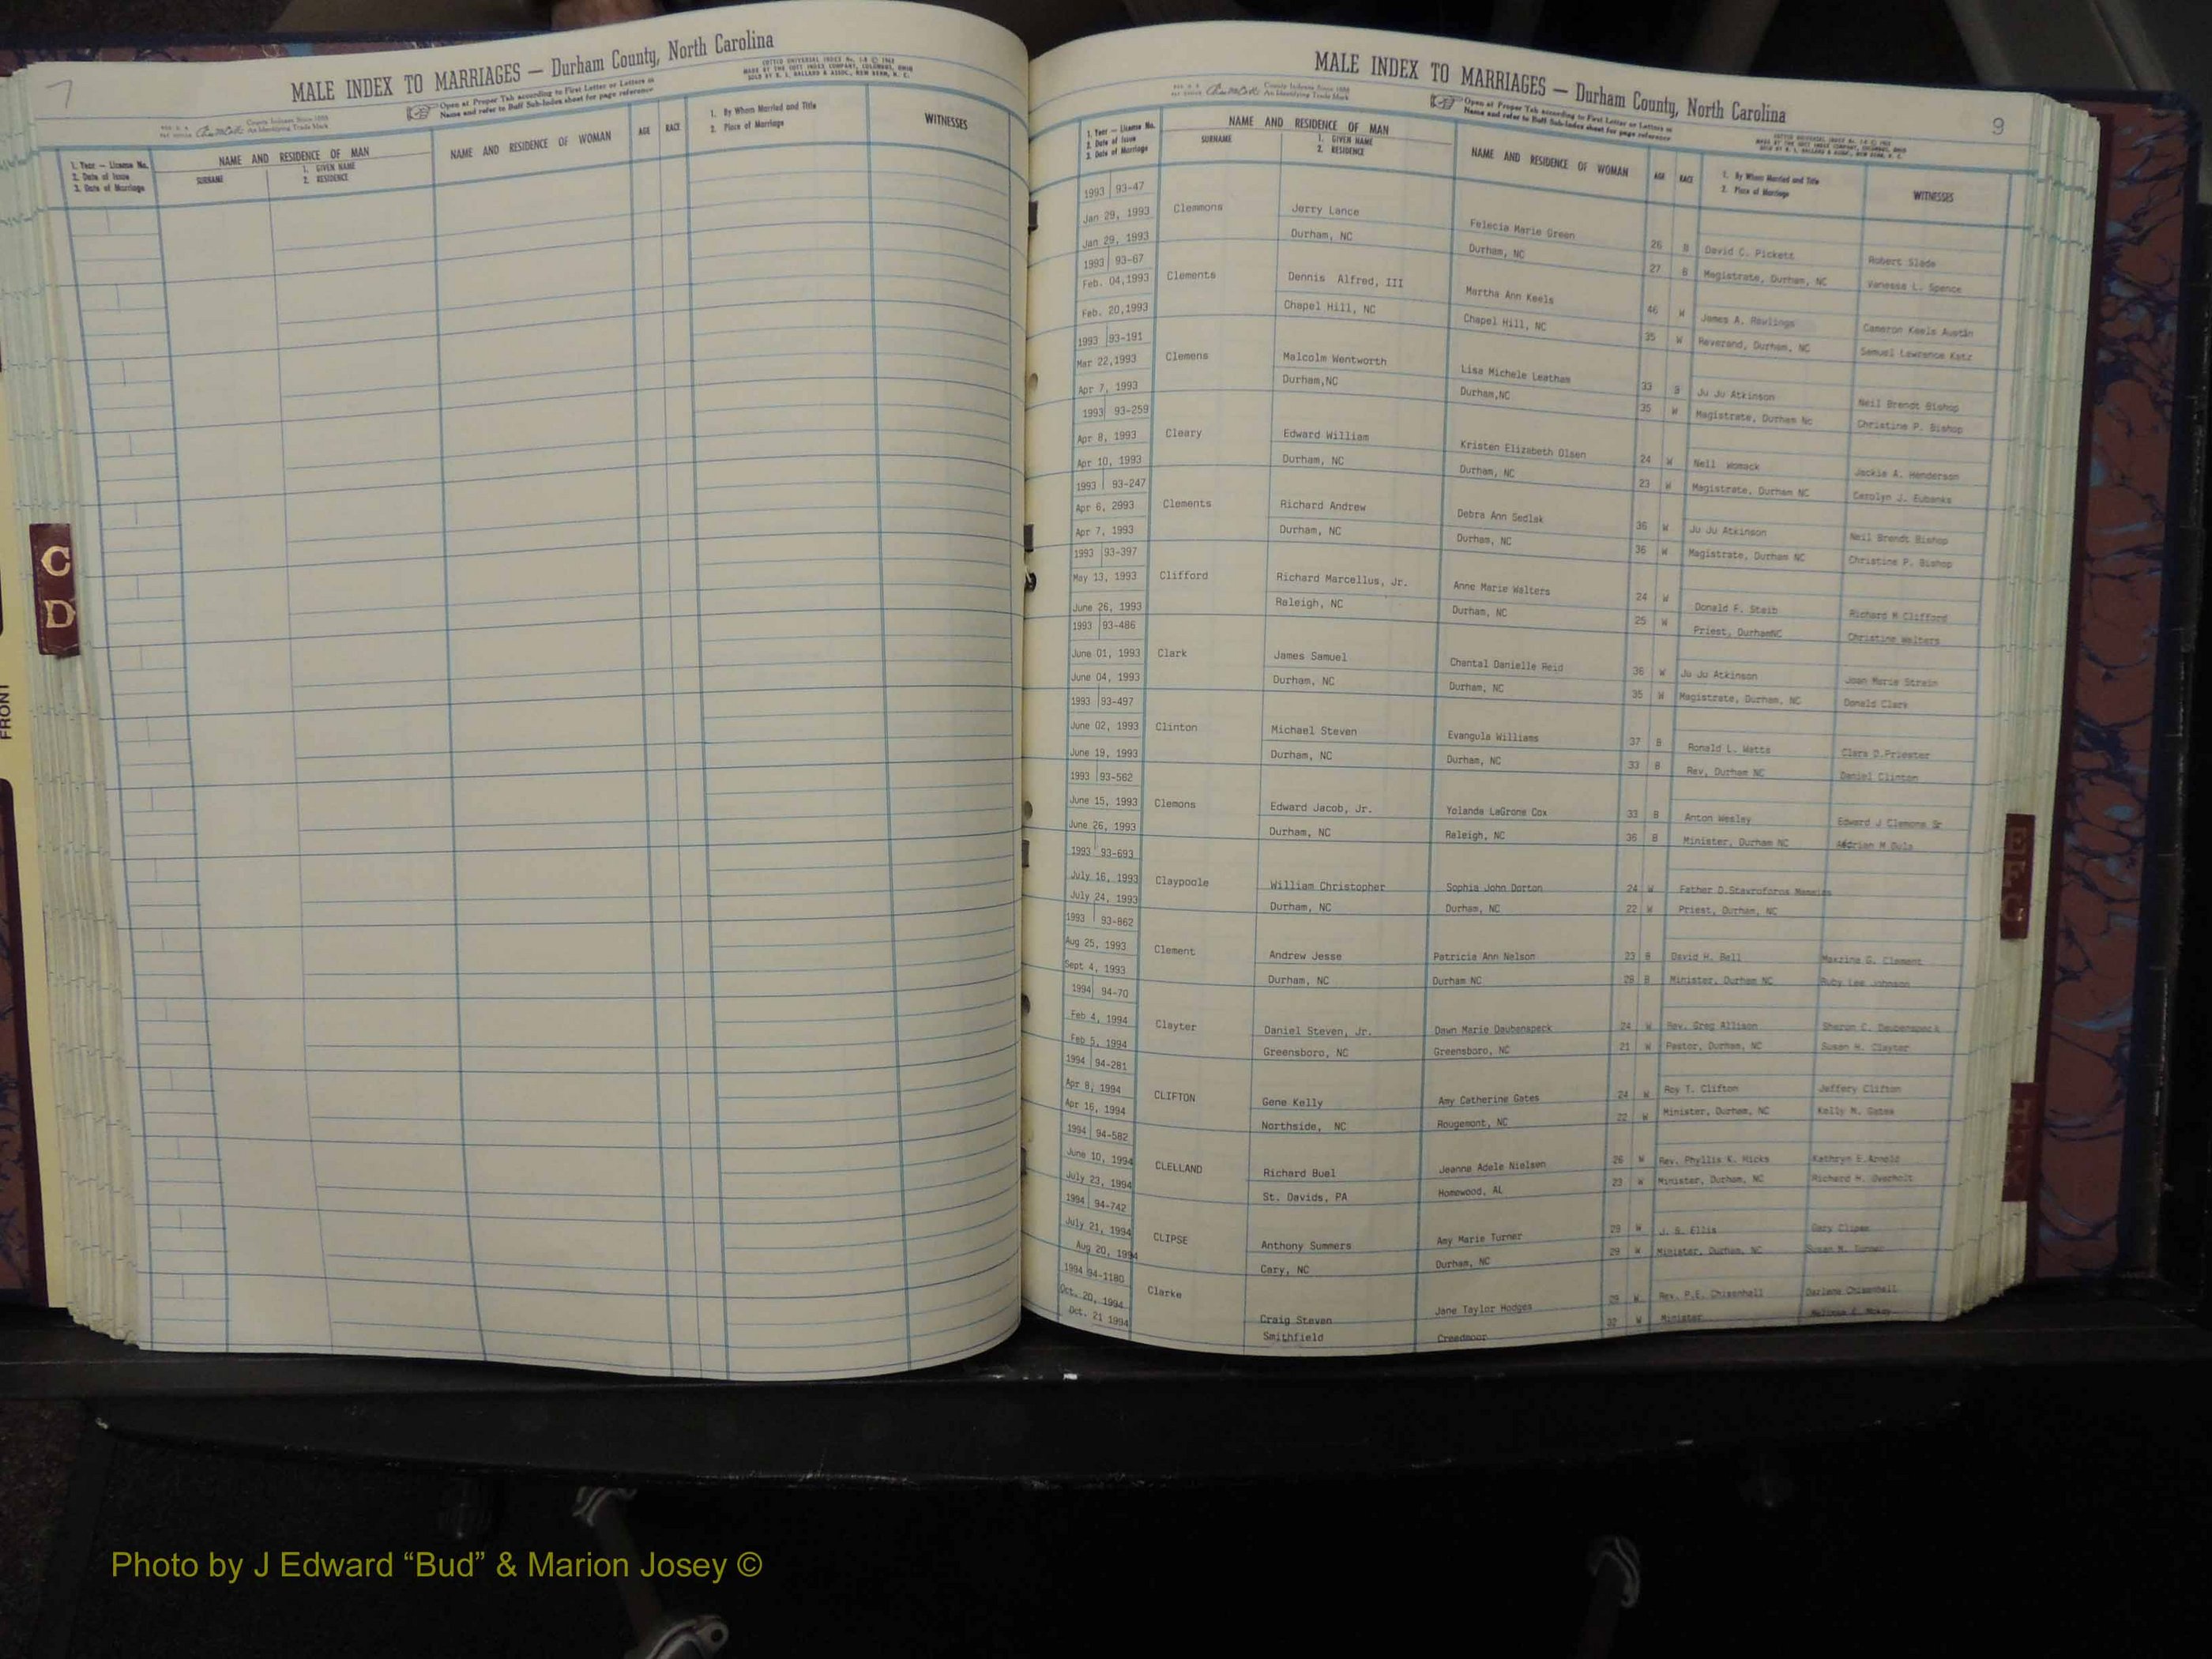 7
MALE INDEX TO MARRIAGES — Durham County, North Carolina
Open at Proper Tab according to First Letter or Letters in
Name and refer to Buff Sub-Index sheet for page reference
County Indexes Since 1888
An Identifying Trade Mark
1. Year — License No.
2. Date of Issue
3. Date of Marriage
NAME AND RESIDENCE OF MAN
SURNAME
1. GIVEN NAME
2. RESIDENCE
NAME AND RESIDENCE OF WOMAN
AGE
RACE
1. By Whom Married and Title
2. Place of Marriage
WITNESSES
C
D
FRONT
MALE INDEX TO MARRIAGES — Durham County, North Carolina
9
Open at Proper Tab according to First Letter or Letters in
Name and refer to Buff Sub-Index sheet for page reference
County Indexes Since 1888
An Identifying Trade Mark
1. Year — License No.
2. Date of Issue
3. Date of Marriage
NAME AND RESIDENCE OF MAN
SURNAME
1. GIVEN NAME
2. RESIDENCE
NAME AND RESIDENCE OF WOMAN
AGE
RACE
1. By Whom Married and Title
2. Place of Marriage
WITNESSES
1993 93-47
Jan 29, 1993 Clemmons Jerry Lance Felecia Marie Green 26 B David C. Pickett Robert Slade
Jan 29, 1993 Durham, NC Durham, NC 27 B Magistrate, Durham, NC Vanessa L. Spence
1993 93-67
Feb. 04,1993 Clements Dennis Alfred, III Martha Ann Keels 46 W James A. Rawlings Cameron Keels Austin
Feb. 20,1993 Chapel Hill, NC Chapel Hill, NC 35 W Reverand, Durham, NC Samuel Lawrence Katz
1993 93-191
Mar 22,1993 Clemens Malcolm Wentworth Lisa Michele Leatham 33 B Ju Ju Atkinson Neil Brendt Bishop
Apr 7, 1993 Durham,NC Durham,NC 35 W Magistrate, Durham Nc Christine P. Bishop
1993 93-259
Apr 8, 1993 Cleary Edward William Kristen Elizabeth Olsen 24 W Nell Womack Jackie A. Henderson
Apr 10, 1993 Durham, NC Durham, NC 23 W Magistrate, Durham NC Carolyn J. Eubanks
1993 93-247
Apr 6, 2993 Clements Richard Andrew Debra Ann Sedlak 36 W Ju Ju Atkinson Neil Brendt Bishop
Apr 7, 1993 Durham, NC Durham, NC 36 W Magistrate, Durham NC Christine P. Bishop
1993 93-397
May 13, 1993 Clifford Richard Marcellus, Jr. Anne Marie Walters 24 W Donald F. Steib Richard M Clifford
June 26, 1993 Raleigh, NC Durham, NC 25 W Priest, DurhamNC Christine Walters
1993 93-486
June 01, 1993 Clark James Samuel Chantal Danielle Reid 36 W Ju Ju Atkinson Joan Marie Strain
June 04, 1993 Durham, NC Durham, NC 35 W Magistrate, Durham, NC Donald Clark
1993 93-497
June 02, 1993 Clinton Michael Steven Evangula Williams 37 B Ronald L. Watts Clara D.Priester
June 19, 1993 Durham, NC Durham, NC 33 B Rev, Durham NC Daniel Clinton
1993 93-562
June 15, 1993 Clemons Edward Jacob, Jr. Yolanda LaGrone Cox 33 B Anton Wesley Edward J Clemons Sr
June 26, 1993 Durham, NC Raleigh, NC 36 B Minister, Durham NC Adrian M Dula
1993 93-693
July 16, 1993 Claypoole William Christopher Sophia John Dorton 24 W Father D.Stavroforos
July 24, 1993 Durham, NC Durham, NC 22 W Priest, Durham, NC
1993 93-862
Aug 25, 1993 Clement Andrew Jesse Patricia Ann Nelson 23 B David H. Bell Maxzine G. Clement
Sept 4, 1993 Durham, NC Durham NC 28 B Minister, Durham NC Ruby Lee Johnson
1994 94-70
Feb 4, 1994 Clayter Daniel Steven, Jr. Dawn Marie Daubenspeck 24 W Rev. Greg Allison Sharon C. Daubenspeck
Feb 5, 1994 Greensboro, NC Greensboro, NC 21 W Pastor, Durham, NC Susan H. Clayter
1994 94-281
Apr 8, 1994 CLIFTON Gene Kelly Amy Catherine Gates 24 W Roy T. Clifton Jeffery Clifton
Apr 16, 1994 Northside, NC Rougemont, NC 22 W Minister, Durham, NC Kelly M. Gates
1994 94-582
June 10, 1994 CLELLAND Richard Buel Jeanne Adele Nielsen 26 W Rev. Phyllis K. Hicks Kathryn E.Arnold
July 23, 1994 St. Davids, PA Homewood, AL 23 W Minister, Durham, NC Richard H. Overholt
1994 94-742
July 21, 1994 CLIPSE Anthony Summers Amy Marie Turner 29 W J. S. Ellis Gary Clipse
Aug 20, 1994 Cary, NC Durham, NC 29 W Minister, Durham, NC Susan M. Turner
1994 94-1180
Oct. 20, 1994 Clarke Craig Steven Jane Taylor Hodges 29 W Rev. P.E. Chisenhall Darlene Chisenhall
Oct. 21 1994 Smithfield Creedmoor 32 W Minister
Photo by J Edward “Bud” & Marion Josey ©